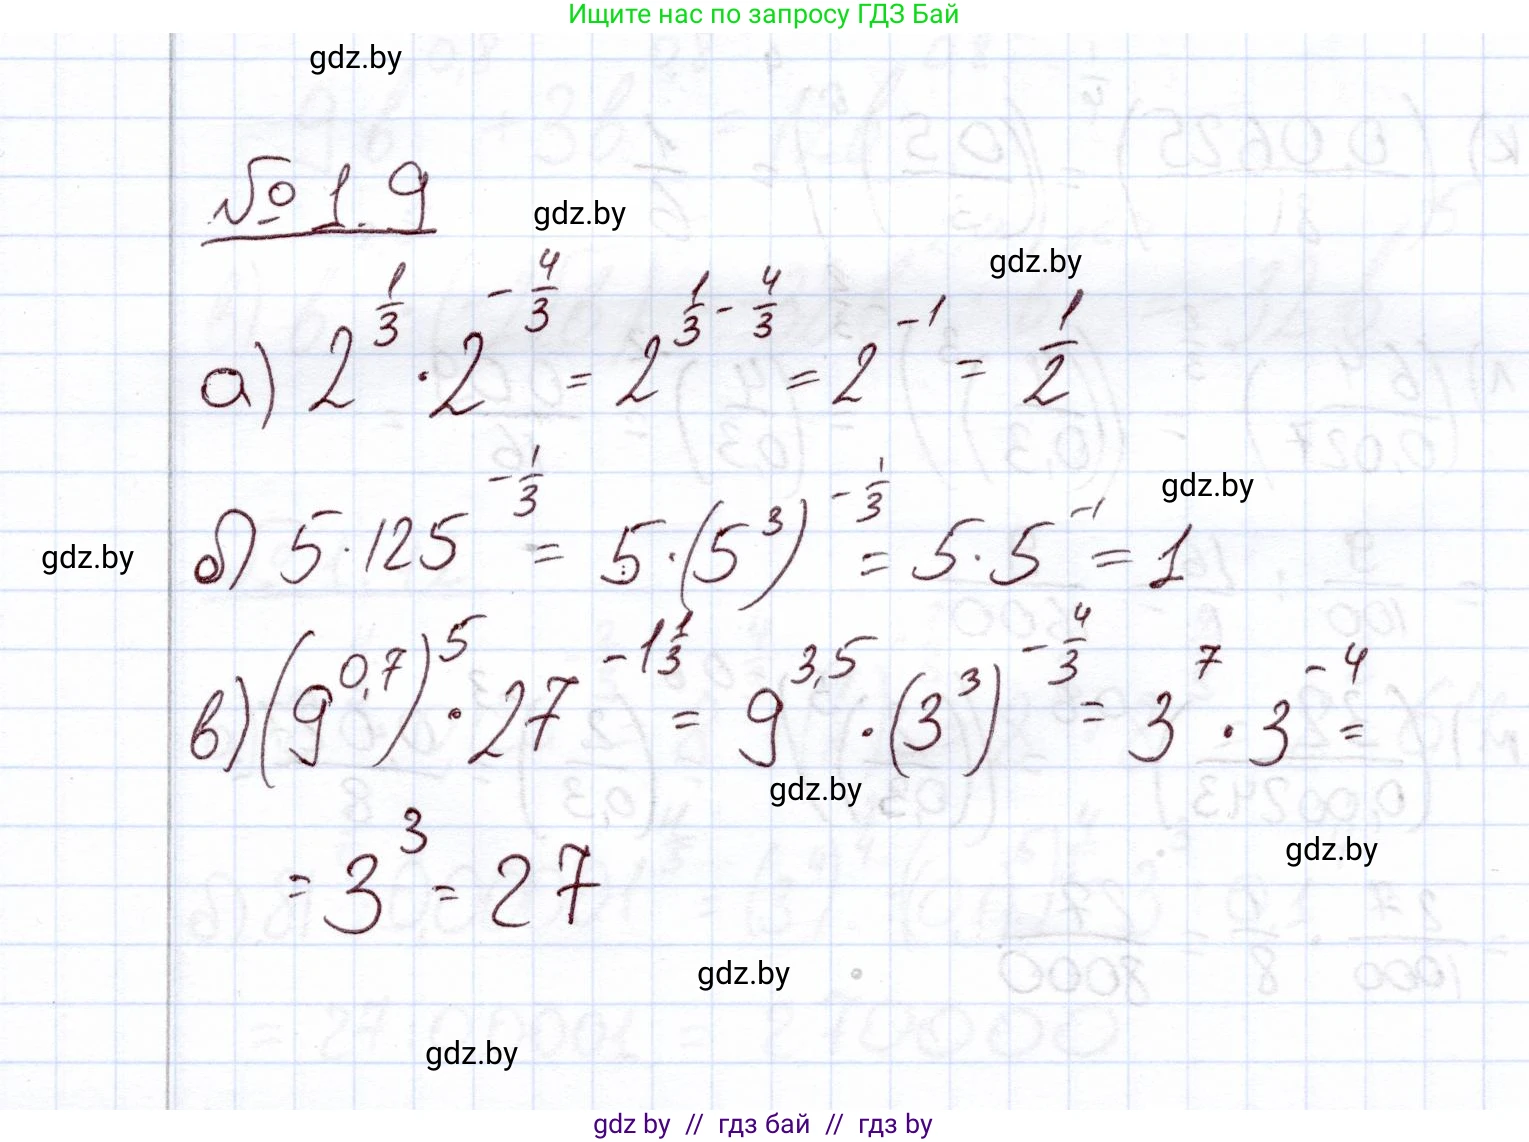 Ищите нас по запросу ГДЗ Бай
gdz.by
№ 1.9
gdz.by
gdz.by
а) 2^{1/3} · 2^{-4/3} = 2^{1/3 - 4/3} = 2^{-1} = 1/2
gdz.by
б) 5 · 125^{-1/3} = 5 · (5^3)^{-1/3} = 5 · 5^{-1} = 1
gdz.by
в) (9^{0,7})^5 · 27^{-1 1/3} = 9^{3,5} · (3^3)^{-4/3} = 3^7 · 3^{-4} =
gdz.by
gdz.by
= 3^3 = 27
gdz.by
gdz.by
gdz by // гдз бай // гдз by